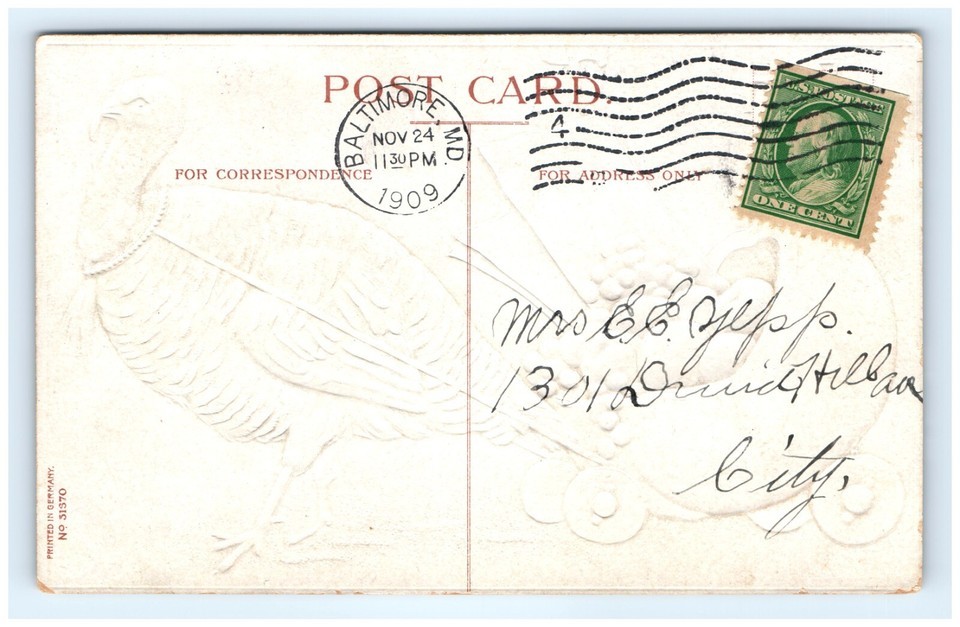 POST CARD.
BALTIMORE, MD.
NOV 24
11 30 PM
1909
4
U.S. POSTAGE
ONE CENT
FOR CORRESPONDENCE
FOR ADDRESS ONLY
Mrs E. E. Yepp.
1301 Druid Hill av
City,
PRINTED IN GERMANY.
No 31370